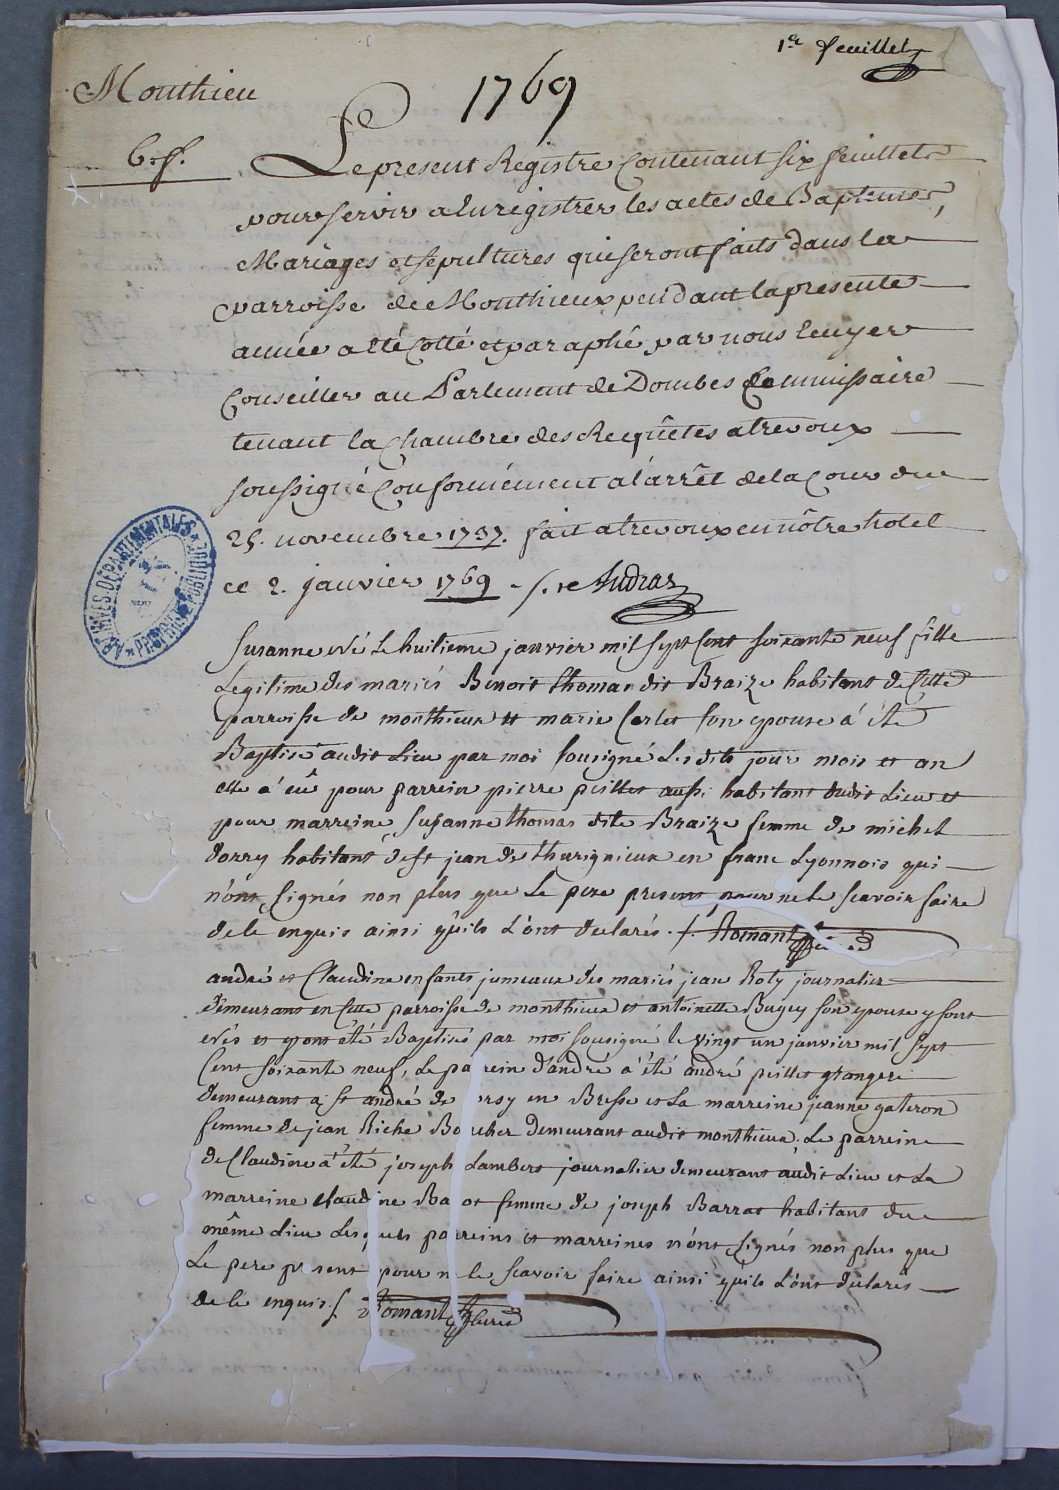 1er feuillet
Monthieu
1769
6. f.
Le present Registre Contenant six feuillets
pour servir a Enregistrer les actes de Baptemes,
Mariages et sepultures qui seront faits dans la
parroisse de Monthieux pendant la presente
année a été Cotté et paraphé par nous Ecuyer
Conseiller au Parlement de Dombes Commissaire
tenant la Chambre des Requêtes a trevoux
soussigné Conformément a l'arrêt de la Cour du
25. novembre 1737. fait a trevoux en nôtre hotel
ce 2. janvier 1769
ARCHIVES DÉPARTEMENTALES
Susanne née Le huitieme janvier mil sept Cent soixante neuf fille
Legitime des mariés Benoit thomas dit Braize habitant de Cette
parroisse de monthieux et marie Carlet son epouse á été
Baptisé audit Lieu par moi sousigné Les dits jour mois et an
elle á eû pour parrein pierre peillet aussi habitant dudit Lieu et
pour marreine Susanne thomas dite Braize femme de michel
dorry habitant de st jean de thurignieux en franc Lyonnois qui
n'ont signés non plus que Le pere present pour ne le scavoir faire
de le enquis ainsi qu'ils L'ont declarés. Romant
andré et Claudine enfants jumeaux des mariés jean Roty journalier
demeurant en Cette parroisse de monthieux et antoinette Bugey son epouse y sont
nés et y ont été Baptisés par moi sousigné le vingt un janvier mil sept
Cent soixante neuf, Le pa rein d'andré á été andré peillet granger
demeurant á st andré de orsy en Bresse et La marreine jeanne galeron
femme de jean Riche Bo cher demeurant audit monthieux. Le parrein
de Claudine á été joseph Lambert journalier demeurant audit Lieu et La
marreine Claudine Ba ot femme de joseph Barrat habitant du
même Lieu Lesquels parreins et marreines n'ont signés non plus que
Le pere p sent pour n le scavoir faire ainsi qu'ils L'ont declarés
de le enquis. Romant